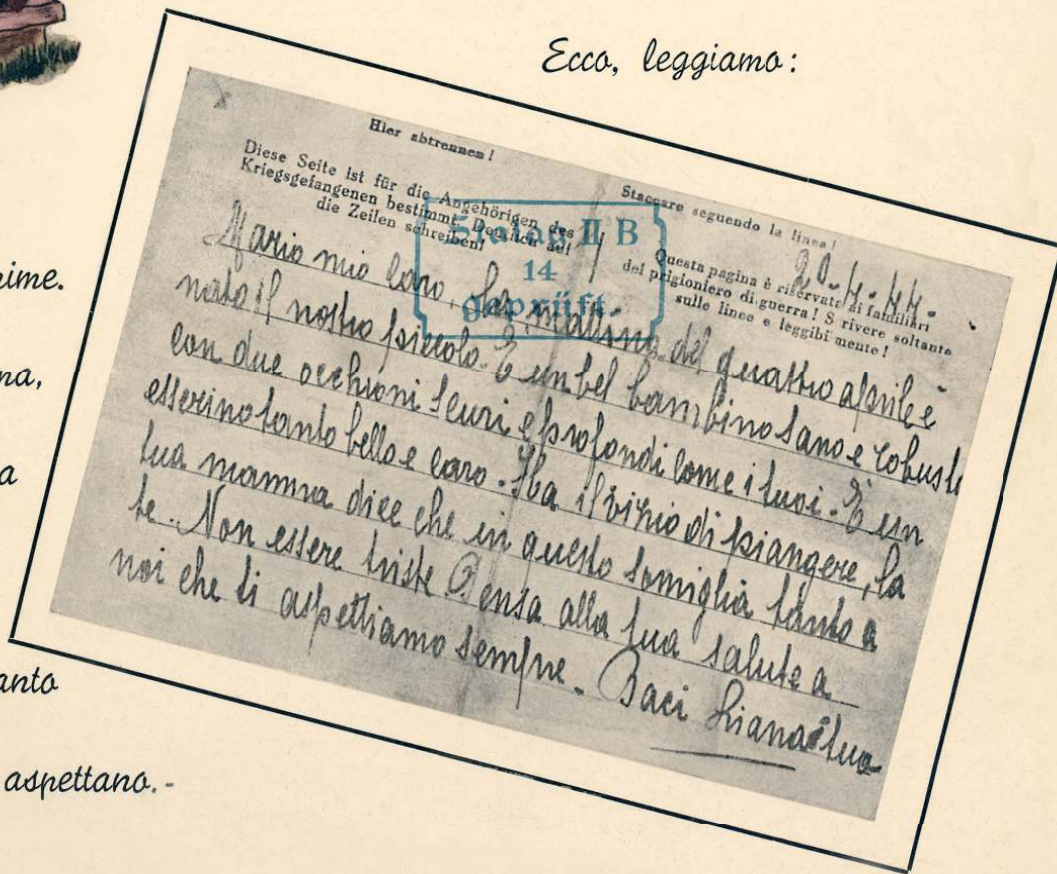 Ecco, leggiamo:
Hier abtrennen!
Diese Seite ist für die Angehörigen des
Kriegsgefangenen bestimmt. Deutlich auf
die Zeilen schreiben!
Staccare seguendo la linea!
Questa pagina è riservata ai familiari
del prigioniero di guerra! S rivere soltanto
sulle linee e leggibi mente!
Stalag II B
14
geprüft.
20-4-44-
Mario mio caro, La mattina del quattro aprile è
nato il nostro piccolo. È un bel bambino sano e robusto
con due occhioni scuri e profondi come i tuoi. È un
esserino tanto bello e caro. Ha il vizio di piangere, la
tua mamma dice che in questo somiglia tanto a
te. Non essere triste Pensa alla tua salute a
noi che ti aspettiamo sempre. Baci Liana tua
ime.
na,
a
anto
aspettano.-